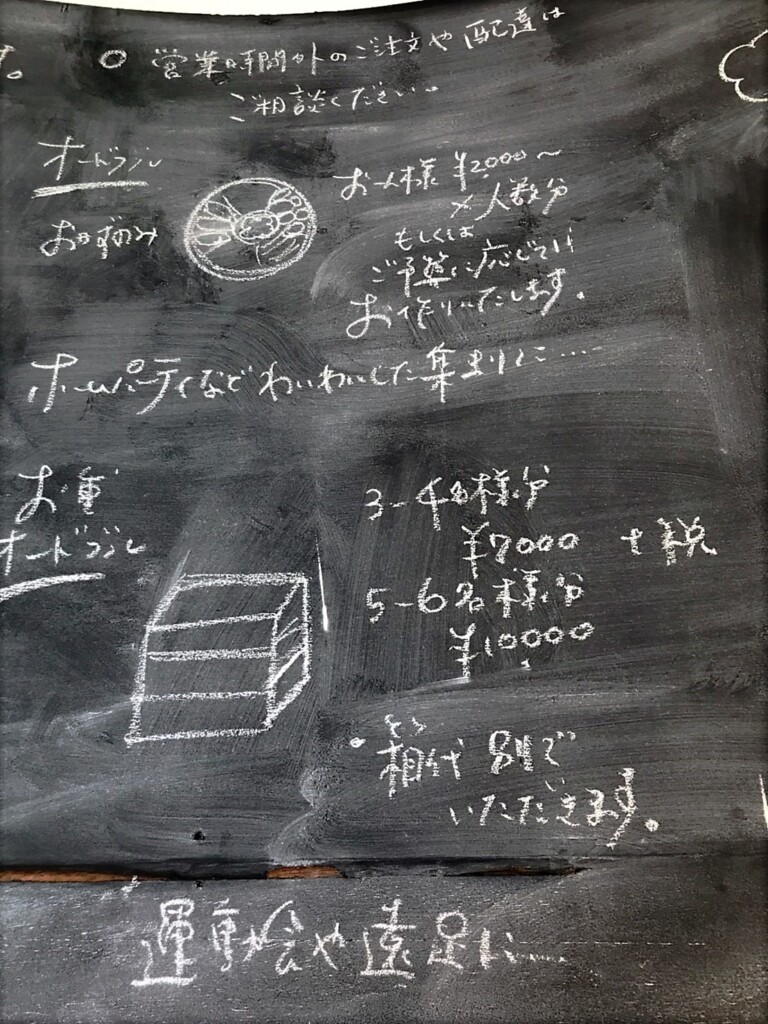 す。
○ 営業時間外のご注文や配達は
ご相談ください。
オードブル
おかずのみ
お一人様 ¥2000〜
×人数分
もしくは
ご予算に応じて
お作りいたします。
ホームパーティなどわいわいした集まりに....
お重
オードブル
3-4名様分
¥7000 +税
5-6名様分
¥10000
・箱代 別で
いただきます。
運動会や遠足に.....